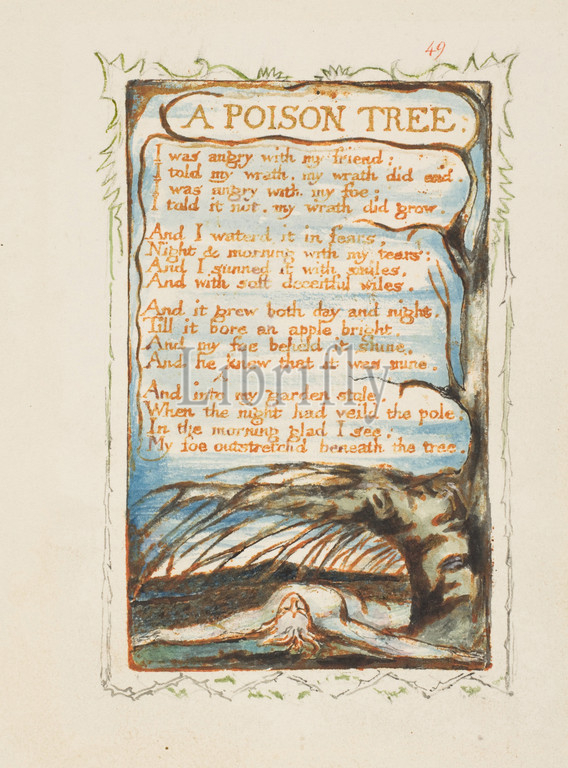 49
A POISON TREE.
I was angry with my friend:
I told my wrath, my wrath did end.
I was angry with my foe:
I told it not, my wrath did grow.
And I waterd it in fears,
Night & morning with my tears:
And I sunned it with smiles,
And with soft deceitful wiles.
And it grew both day and night,
Till it bore an apple bright.
And my foe beheld it shine,
And he knew that it was mine.
And into my garden stole.
When the night had veild the pole;
In the morning glad I see;
My foe outstretchd beneath the tree.
Librifly